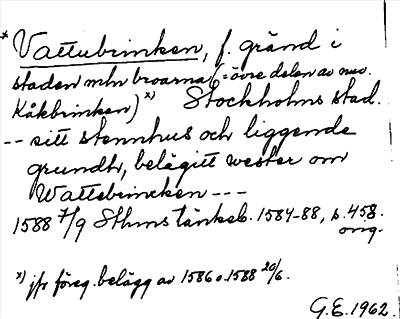 * Vattubrinken, f. gränd i
staden mln broarna (= övre delen av nuv.
Kåkbrinken) x) Stockholms stad.
-- sitt stennhus och liggende
grundh, belägitt wester om
Wattebrincken ---
1588 7/9 Sthms tänkeb. 1584-88, s. 458.
orig.
x) jfr föreg. belägg av 1586 o. 1588 20/6.
G.E. 1962.